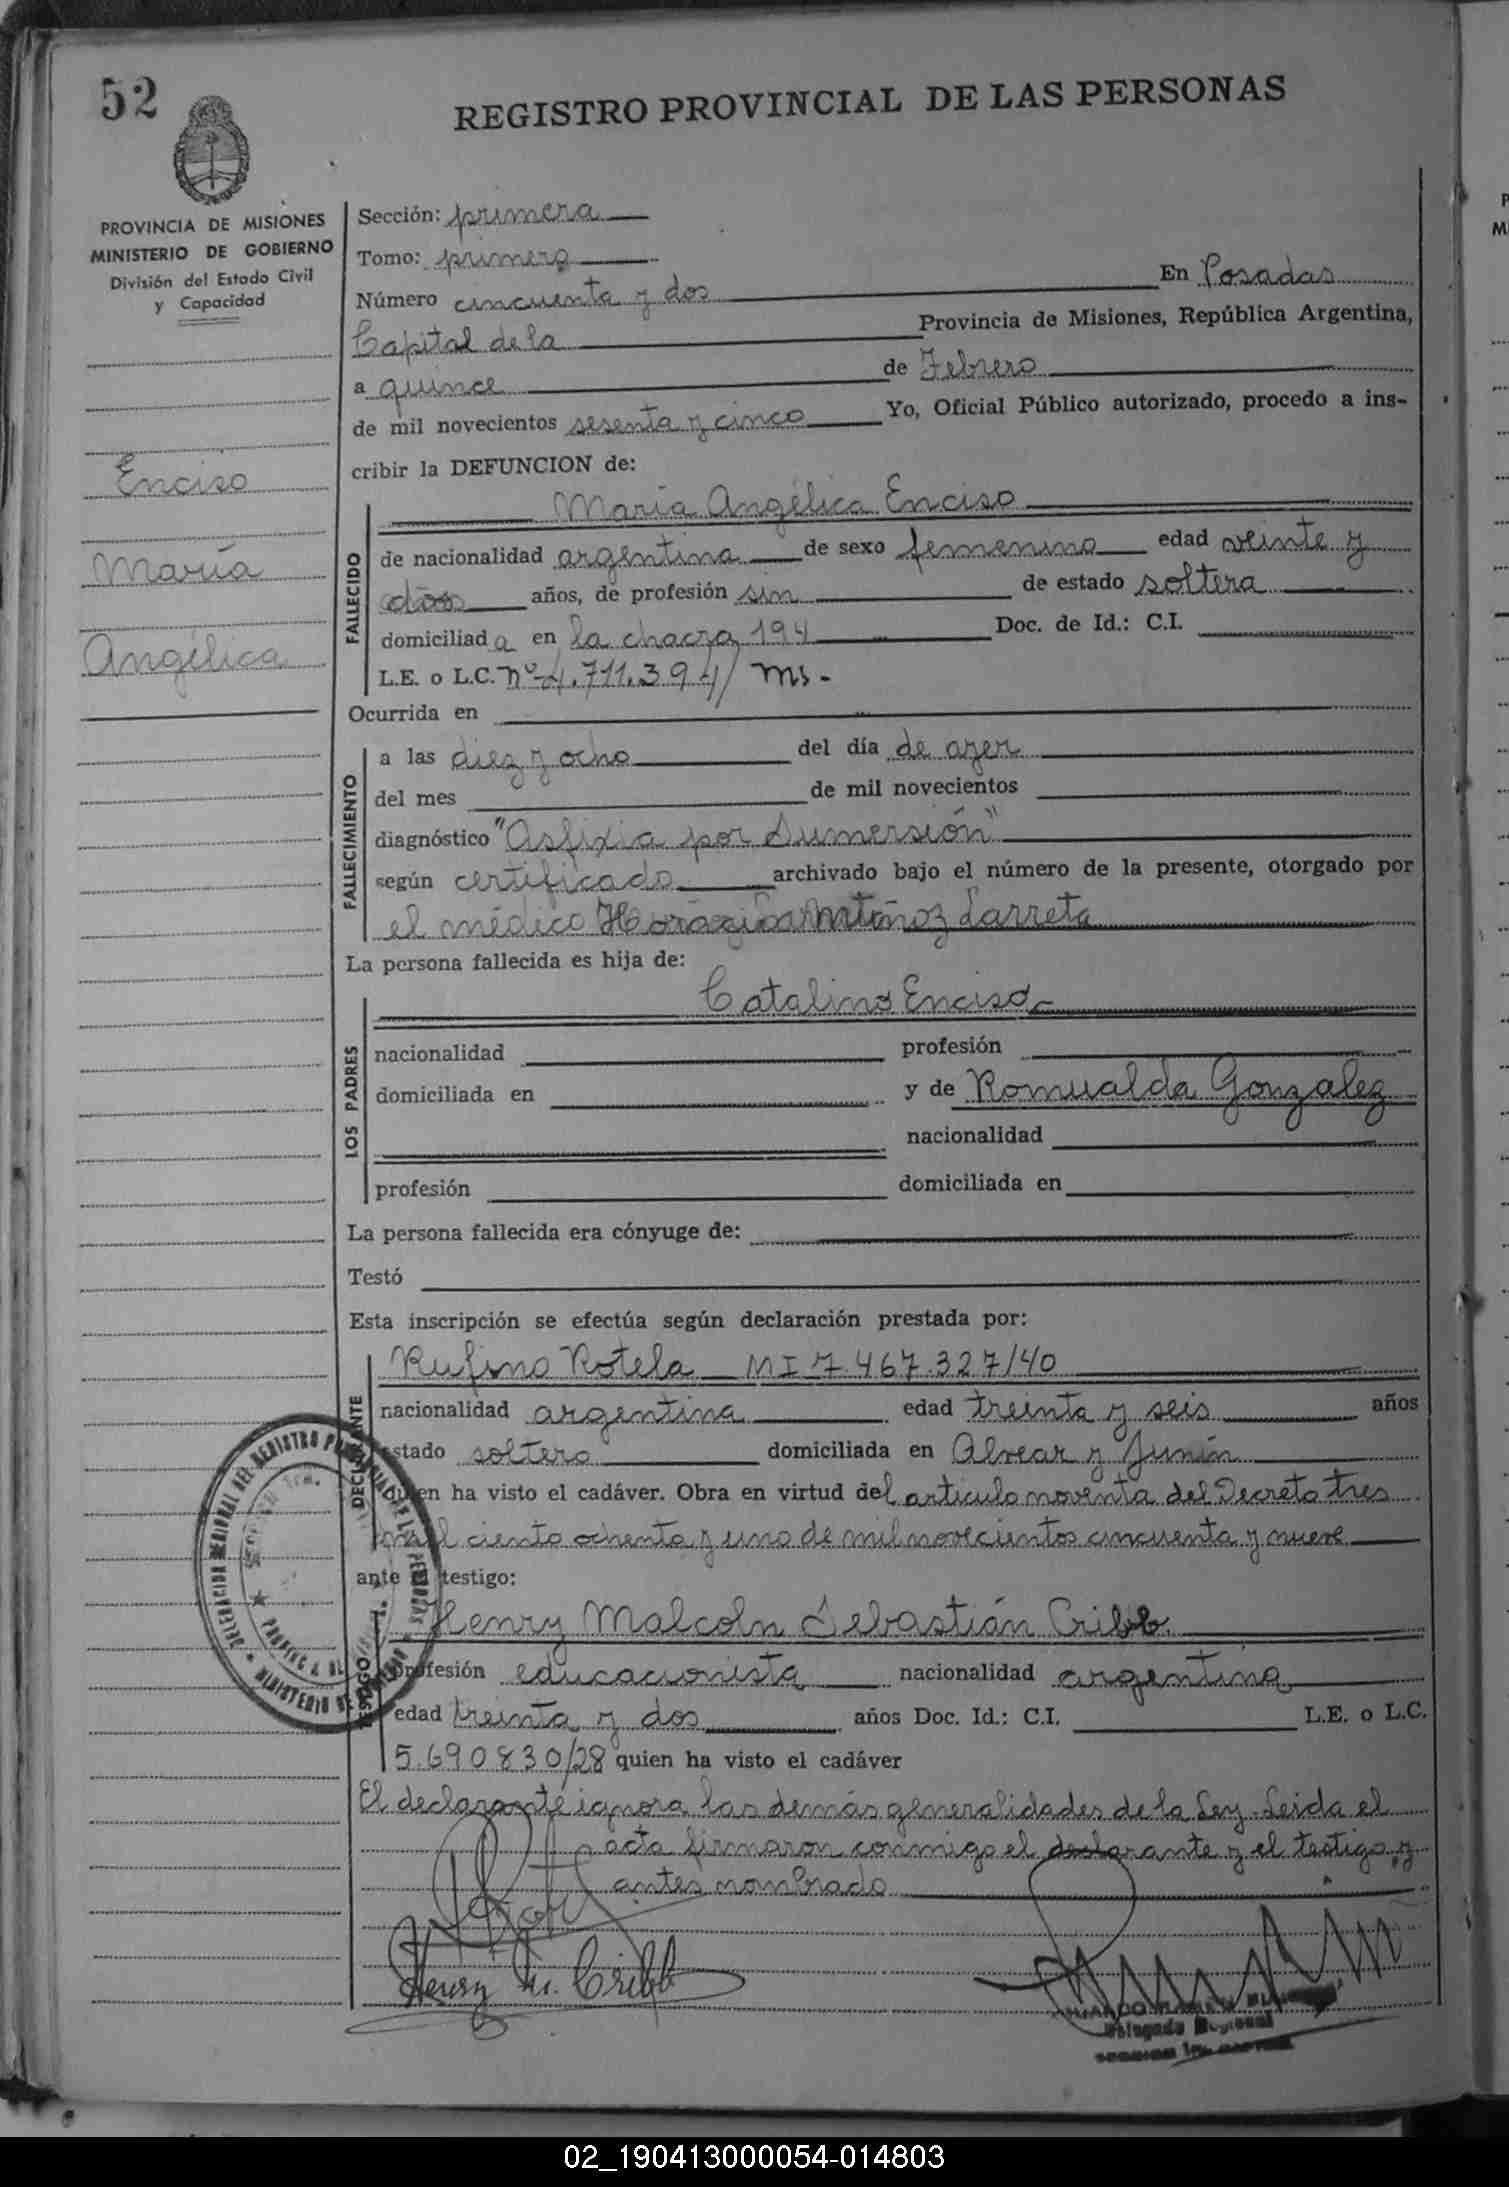 52
REGISTRO PROVINCIAL DE LAS PERSONAS
PROVINCIA DE MISIONES
MINISTERIO DE GOBIERNO
División del Estado Civil
y Capacidad
Enciso
María
Angélica
Sección: primera
Tomo: primero
Número cincuenta y dos En Posadas
Capital de la Provincia de Misiones, República Argentina,
a quince de Febrero
de mil novecientos sesenta y cinco Yo, Oficial Público autorizado, procedo a ins-
cribir la DEFUNCION de:
FALLECIDO
María Angélica Enciso
de nacionalidad argentina de sexo femenino edad veinte y
dos años, de profesión sin de estado soltera
domiciliada en la chacra 194 Doc. de Id.: C.I.
L.E. o L.C. nº 4.711.394/ ms.
Ocurrida en
FALLECIMIENTO
a las diez y ocho del día de ayer
del mes de mil novecientos
diagnóstico "Asfixia por Sumersión"
según certificado archivado bajo el número de la presente, otorgado por
el médico Larreta
La persona fallecida es hija de:
LOS PADRES
Catalino Enciso
nacionalidad profesión
domiciliada en y de Romualda Gonzalez
nacionalidad
profesión domiciliada en
La persona fallecida era cónyuge de:
Testó
Esta inscripción se efectúa según declaración prestada por:
DECLARANTE
Rufino Rotela MI 7.467.327/40
nacionalidad argentina edad treinta y seis años
estado soltero domiciliada en Alvear y Junín
quien ha visto el cadáver. Obra en virtud del articulo noventa del Decreto tres
mil ciento ochenta y uno de mil novecientos cincuenta y nueve
ante el testigo:
TESTIGO
Henry Malcoln Sebastián Cribb
profesión educacionista nacionalidad argentina
edad treinta y dos años Doc. Id.: C.I. L.E. o L.C.
5.690830/28 quien ha visto el cadáver
El declarante ignora las demás generalidades de la Ley. Leida el
acta firmaron conmigo el declarante y el testigo, y
antes nombrado
Henry M. Cribb
Delegado Regional
02_190413000054-014803